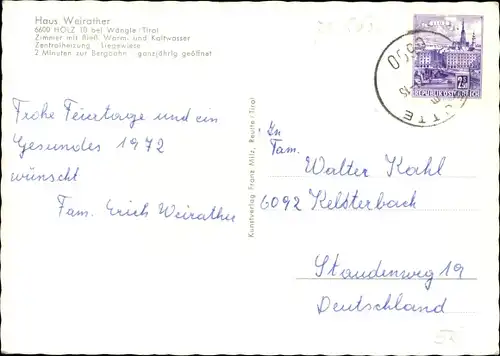 Haus Weirather
6600 HOLZ 10 bei Wängle - Tirol
Zimmer mit fließ. Warm- und Kaltwasser
Zentralheizung Liegewiese
2 Minuten zur Bergbahn ganzjährig geöffnet
Frohe Feiertage und ein
Gesundes 1972
wünscht
Fam. Erich Weirather
Kunstverlag Franz Milz, Reutte-Tirol
REPUBLIK ÖSTERREICH
An
Fam.
Walter Kahl
6092 Kelsterbach
Staudenweg 19
Deutschland